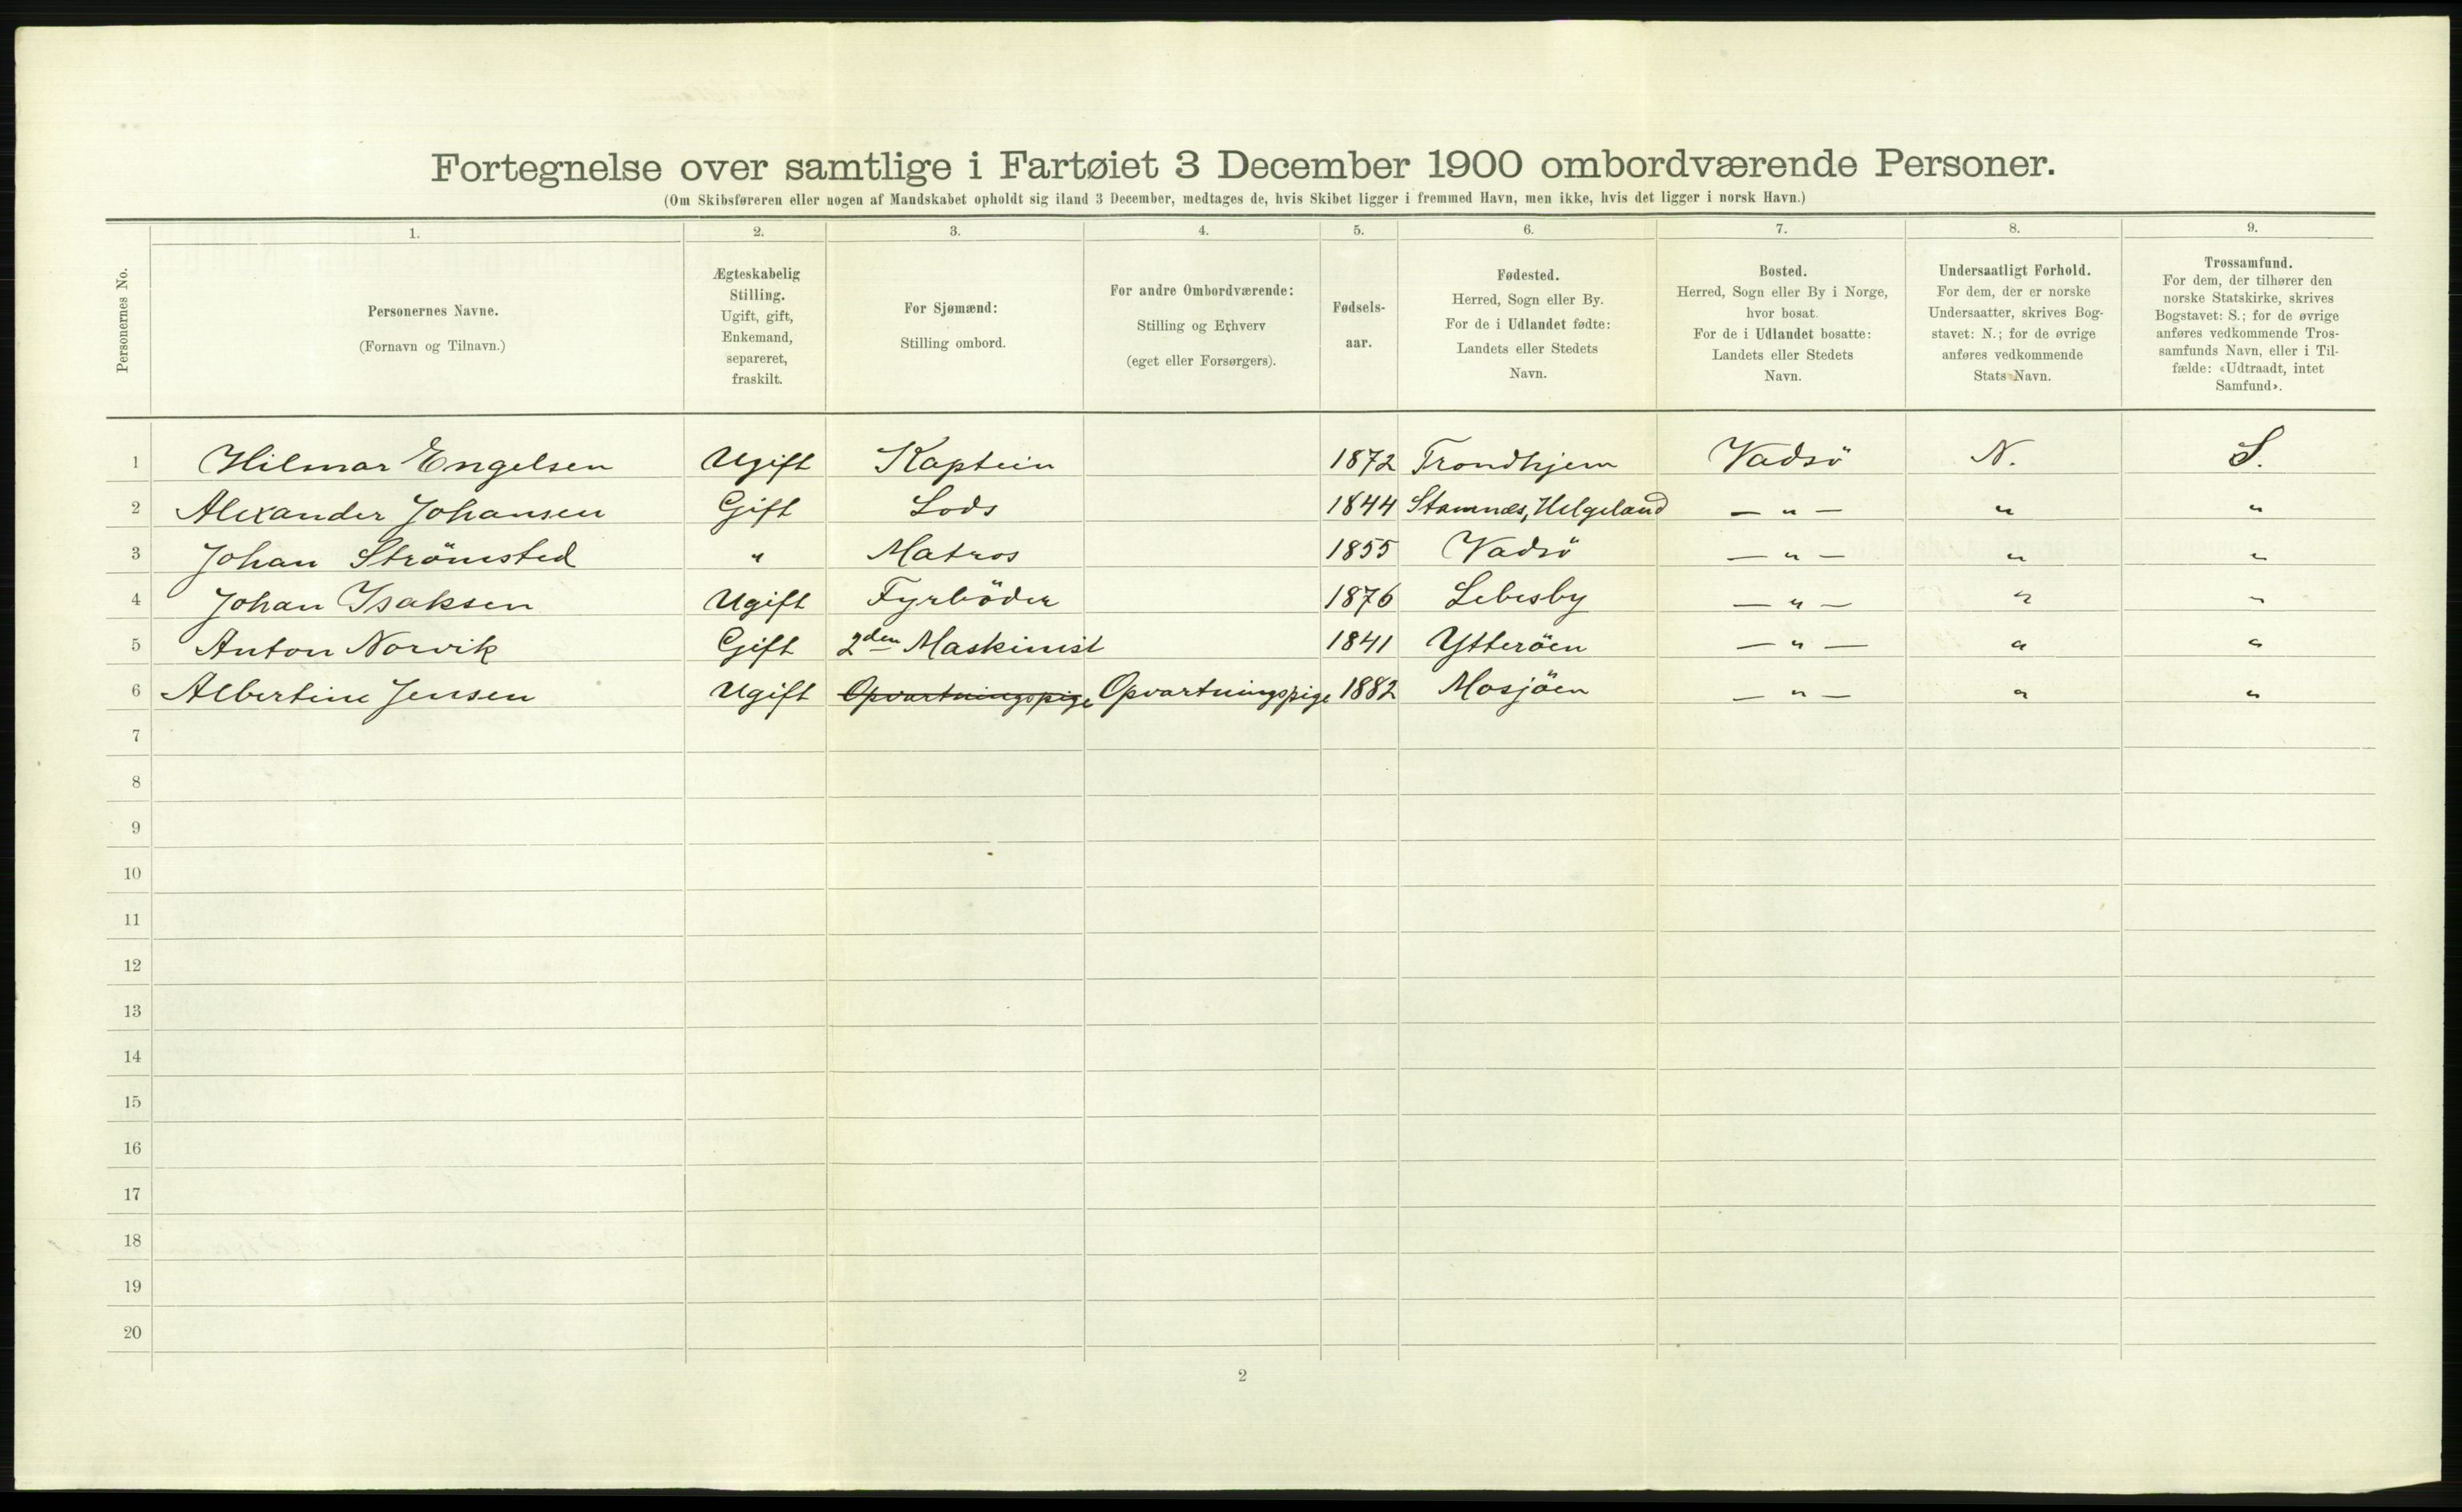 Fortegnelse over samtlige i Fartøiet 3 December 1900 ombordværende Personer.
(Om Skibsføreren eller nogen af Mandskabet opholdt sig iland 3 December, medtages de, hvis Skibet ligger i fremmed Havn, men ikke, hvis det ligger i norsk Havn.)
Personernes No.
1.
Personernes Navne.
(Fornavn og Tilnavn.)
2.
Ægteskabelig
Stilling.
Ugift, gift,
Enkemand,
separeret,
fraskilt.
3.
For Sjømænd:
Stilling ombord.
4.
For andre Ombordværende:
Stilling og Erhverv
(eget eller Forsørgers).
5.
Fødsels-
aar.
6.
Fødested.
Herred, Sogn eller By.
For de i Udlandet fødte:
Landets eller Stedets
Navn.
7.
Bosted.
Herred, Sogn eller By i Norge,
hvor bosat.
For de i Udlandet bosatte:
Landets eller Stedets
Navn.
8.
Undersaatligt Forhold.
For dem, der er norske
Undersaatter, skrives Bog-
stavet: N.; for de øvrige
anføres vedkommende
Stats Navn.
9.
Trossamfund.
For dem, der tilhører den
norske Statskirke, skrives
Bogstavet: S.; for de øvrige
anføres vedkommende Tros-
samfunds Navn, eller i Til-
fælde: «Udtraadt, intet
Samfund».
1 Hilmar Engelsen Ugift Kaptein 1872 Trondhjem Vadsö N. S.
2 Alexander Johansen Gift Lods 1844 Stamnæs, Helgeland — " — " "
3 Johan Strömsted " Matros 1855 Vadsö — " — " "
4 Johan Isaksen Ugift Fyrböder 1876 Lebesby — " — " "
5 Anton Norvik Gift 2den Maskinist 1841 Ytteröen — " — " "
6 Albertine Jensen Ugift Opvartningspige Opvartningspige 1882 Mosjöen — " — " "
7
8
9
10
11
12
13
14
15
16
17
18
19
20
2